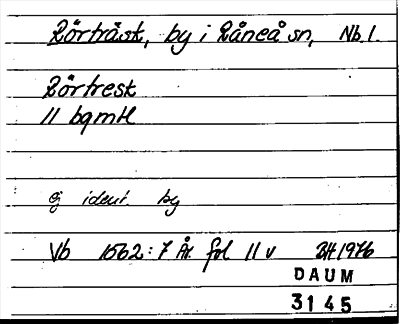 Rörträsk, by i Råneå sn, Nb l.
Rörtresk
11 bgmtl
ej ident. by
Vb 1562:7 År. fol 11 v BH 1976
DAUM
3145